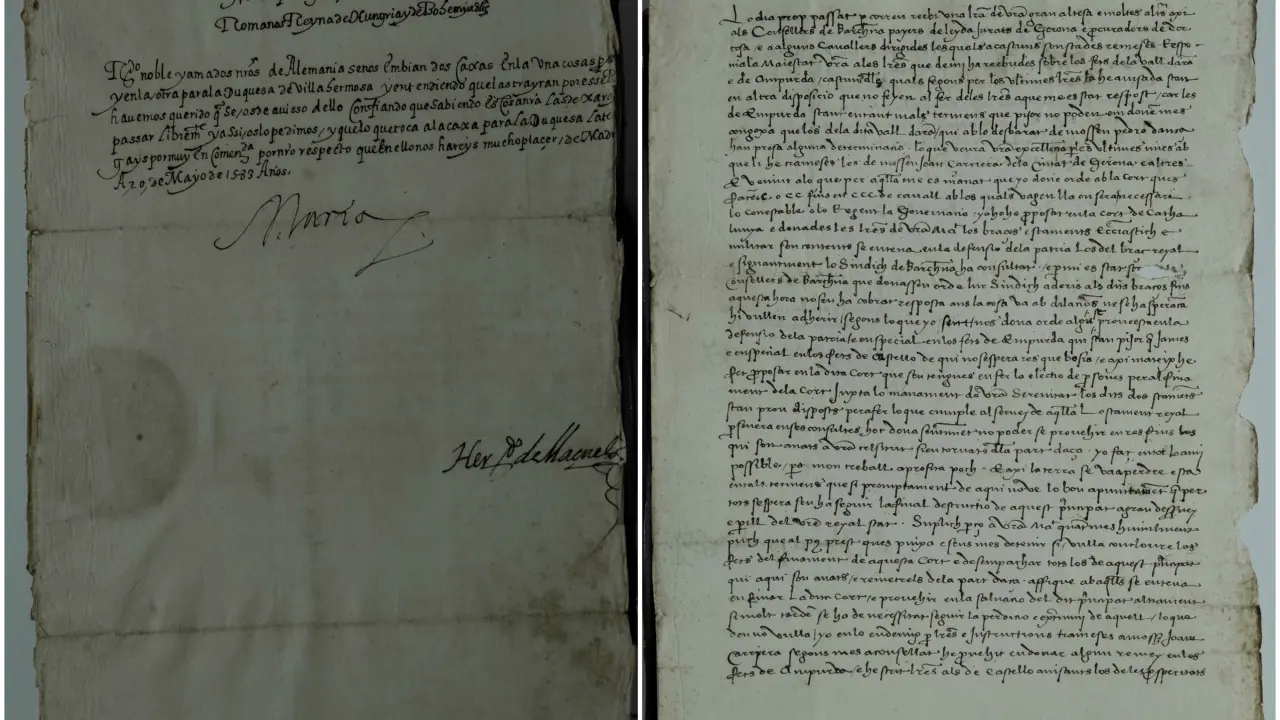 Romanas Reyna de Hungria y de Bohemia
noble y amado nros de Alemania se nos embian dos Caxas En la Una cosas
y en la otra para la Duquesa de Villahermosa y entendiendo que las trayran por esse
havemos querido q̃ se os de auisso dello Confiando que Sabiendo Es Cosa nra Las dexar
passar Librem.te y assi os lo pedimos, y que lo que toca a la caxa para la Duquesa La te
gays por muy En Comen.da por nro respecto que En ello nos hareys mucho placer, de Madrid
A 20, de Mayo de 1583 Años.
Maria
Her.do de
Lo dia prop passat p correu rebi una lra de vra gran altesa e moltes altres axi
als Consellers de Barchna payers de leyda Jurats de Gerona e procuradors de Tor
tosa, e a alguns Cavallers dirigides les quals a cascuns son stades remeses. Respo
mala Maiestat vra a les lres que de mi ha rebudes sobre los fets de la vall daran
e de Ampurda, castun les quals segons per les ultimes lres li he avisada stan
en altra disposicio que no feyen al fer de les lres a que me es stat respost, car les
de Empurda stan en tant mals termens que pijor no poden em donen mes
congoxa que los de la dita vall daran, qui ab lo desbarat de mossen pedro dança
han presa alguna determinacio lo que veura vra excellencia per les ultimes mies ab
que li he trameses les de mossen Joan Carrera, de la Ciutat de Gerona e altres
E venint a lo que per aquella me es manat que yo done orde ab la Cort ques
paren. o CC fins en CCC de cavall ab los quals vagen lla on sera necessari
lo Conestable o lo Regent la Governacio, yo ho he pposar en la Cort de Catha
lunya e donades les lres de vra Mat los braços e staments Ecclesiastich e
militar son contents se entena en la defensio de la patria Los del braç reyal
e signantment lo Sindich de Barchna ha consultat, e p mi es stat
Consellers de Barchna que donassen orde lur Sindich aderis als dits braços fins
aquesta hora no sen ha cobrat resposta ans la cosa va ab dilacions ne se ha sperança
hi vullen adherir, segons lo que yo sent, nos dona orde algu en la
defensio de la patria, e en special en los fets de Empurda qui stan pijor q james
e en special en los fets de Castello de qui no se spera res que bo sia, e axi mateix he
fet pposar en la dita Cort que seu tengues en fer la electio de psones per al fina
ment de la Cort Juxta lo manament de vra Serenitat los dits dos staments
stan prou disposts per a fer lo que cumple al servey de aquella Lo stament reyal
psevera en ses consultes, hoc dona sentiment no poder se provehir en res fins los
qui son anats a vra celsitut sien tornats de lla part daça. yo faç en tot lo a mi
possible, po mon treball aprofita poch. E axi la terra se va a perdre e sta
en tals termens que si promptament de aqui nove lo bon apuntament q per
tots se spera seu ha seguir la final destructio de aquest principat a gran desservey
e perill del vre reyal stat. Suplich pço a vra Mat quant mes humilment
puch que al pus prest ques puixa e sens mes detenir si, vulla concloure los
fets del finament de aquesta Cort e desempatxar tots los de aquest principat
qui aqui son anats, e remetrels de la part daça affi que ab aquells se entena
en finar La dita Cort, e provehir en la salvacio del dit principat altrament
si molt tarde se ha de necessitat seguir la perdicio e extermini de aquell, lo que
deu no vulla, yo en lo endemig p lres e Instructions trameses a mossen Joan
Carrera segons mes aconsellat he provehit en donar algun remey en los
fets de Ampurda, e he scrit lres als de Castello avisant los de les psperitats